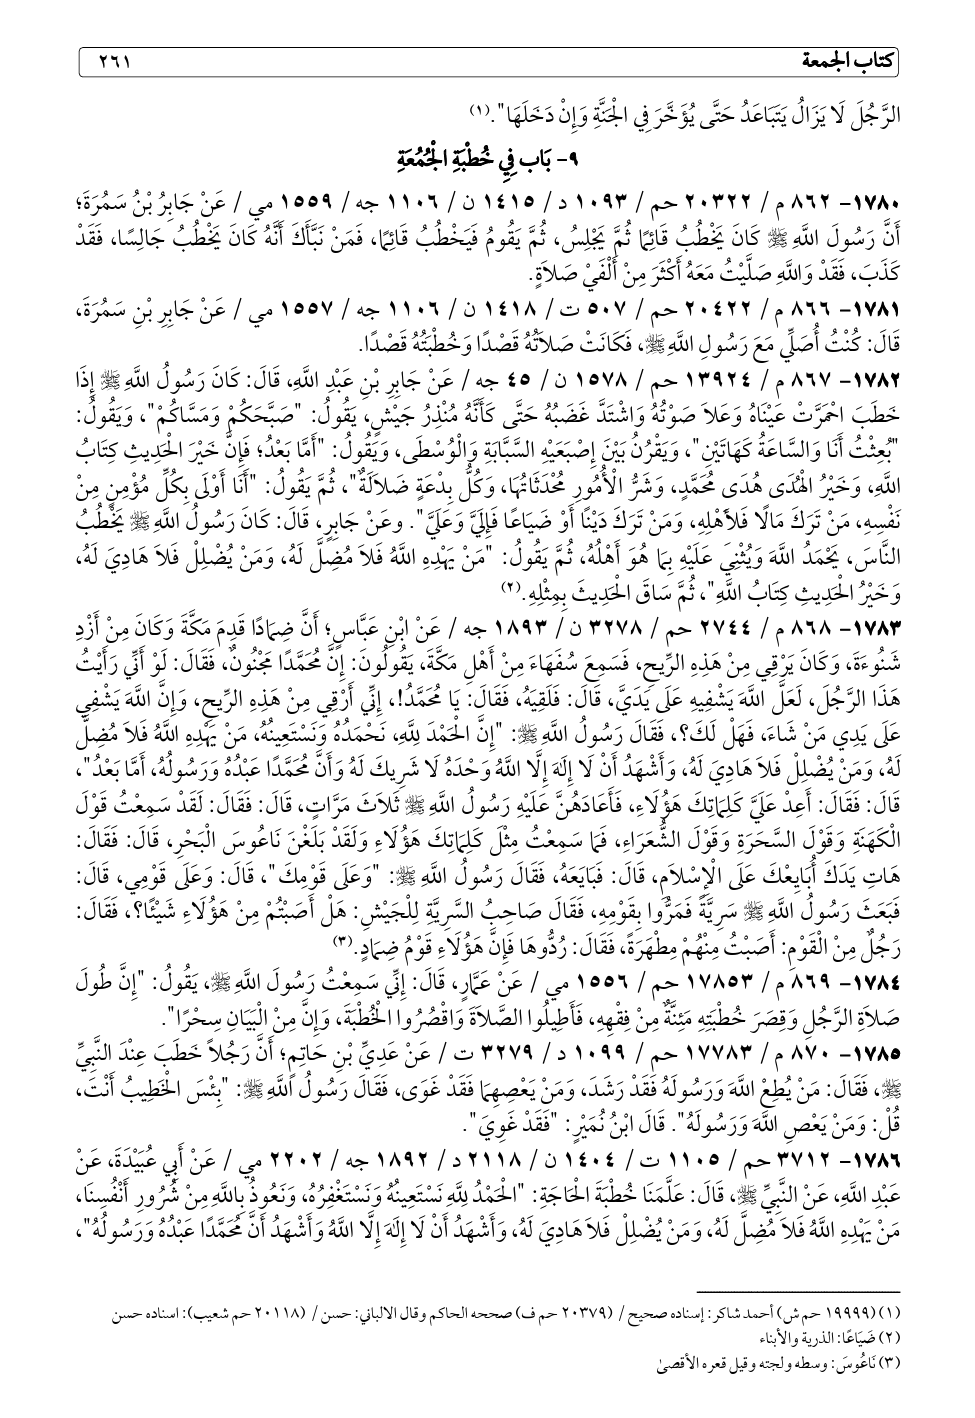 كتاب الجمعة ٢٦١
الرَّجُلَ لَا يَزَالُ يَتَبَاعَدُ حَتَّى يُؤَخَّرَ فِي الْجَنَّةِ وَإِنْ دَخَلَهَا".(١)
٩- بَاب فِي خُطْبَةِ الْجُمُعَةِ
١٧٨٠- ٨٦٢ م/ ٢٠٣٢٢ حم/ ١٠٩٣ د/ ١٤١٥ ن/ ١١٠٦ جه/ ١٥٥٩ مي/ عَنْ جَابِرُ بْنُ سَمُرَةَ؛
أَنَّ رَسُولَ اللَّهِ ﷺ كَانَ يَخْطُبُ قَائِمًا ثُمَّ يَجْلِسُ، ثُمَّ يَقُومُ فَيَخْطُبُ قَائِمًا، فَمَنْ نَبَّأَكَ أَنَّهُ كَانَ يَخْطُبُ جَالِسًا، فَقَدْ
كَذَبَ، فَقَدْ وَاللَّهِ صَلَّيْتُ مَعَهُ أَكْثَرَ مِنْ أَلْفَيْ صَلاَةٍ.
١٧٨١- ٨٦٦ م/ ٢٠٤٢٢ حم/ ٥٠٧ ت/ ١٤١٨ ن/ ١١٠٦ جه/ ١٥٥٧ مي/ عَنْ جَابِرِ بْنِ سَمُرَةَ،
قَالَ: كُنْتُ أُصَلِّي مَعَ رَسُولِ اللَّهِ ﷺ، فَكَانَتْ صَلاَتُهُ قَصْدًا وَخُطْبَتُهُ قَصْدًا.
١٧٨٢- ٨٦٧ م/ ١٣٩٢٤ حم/ ١٥٧٨ ن/ ٤٥ جه/ عَنْ جَابِرِ بْنِ عَبْدِ اللَّهِ، قَالَ: كَانَ رَسُولُ اللَّهِ ﷺ إِذَا
خَطَبَ احْمَرَّتْ عَيْنَاهُ وَعَلاَ صَوْتُهُ وَاشْتَدَّ غَضَبُهُ حَتَّى كَأَنَّهُ مُنْذِرُ جَيْشٍ، يَقُولُ: "صَبَّحَكُمْ وَمَسَّاكُمْ"، وَيَقُولُ:
"بُعِثْتُ أَنَا وَالسَّاعَةُ كَهَاتَيْنِ"، وَيَقْرُنُ بَيْنَ إِصْبَعَيْهِ السَّبَّابَةِ وَالْوُسْطَى، وَيَقُولُ: "أَمَّا بَعْدُ؛ فَإِنَّ خَيْرَ الْحَدِيثِ كِتَابُ
اللَّهِ، وَخَيْرُ الْهُدَى هُدَى مُحَمَّدٍ، وَشَرُّ الْأُمُورِ مُحْدَثَاتُهَا، وَكُلُّ بِدْعَةٍ ضَلاَلَةٌ"، ثُمَّ يَقُولُ: "أَنَا أَوْلَى بِكُلِّ مُؤْمِنٍ مِنْ
نَفْسِهِ، مَنْ تَرَكَ مَالًا فَلأَهْلِهِ، وَمَنْ تَرَكَ دَيْنًا أَوْ ضَيَاعًا فَإِلَيَّ وَعَلَيَّ". وعَنْ جَابِرٍ، قَالَ: كَانَ رَسُولُ اللَّهِ ﷺ يَخْطُبُ
النَّاسَ، يَحْمَدُ اللَّهَ وَيُثْنِي عَلَيْهِ بِمَا هُوَ أَهْلُهُ، ثُمَّ يَقُولُ: "مَنْ يَهْدِهِ اللَّهُ فَلاَ مُضِلَّ لَهُ، وَمَنْ يُضْلِلْ فَلاَ هَادِيَ لَهُ،
وَخَيْرُ الْحَدِيثِ كِتَابُ اللَّهِ"، ثُمَّ سَاقَ الْحَدِيثَ بِمِثْلِهِ.(٢)
١٧٨٣- ٨٦٨ م/ ٢٧٤٤ حم/ ٣٢٧٨ ن/ ١٨٩٣ جه/ عَنْ ابْنِ عَبَّاسٍ؛ أَنَّ ضِمَادًا قَدِمَ مَكَّةَ وَكَانَ مِنْ أَزْدِ
شَنُوءَةَ، وَكَانَ يَرْقِي مِنْ هَذِهِ الرِّيحِ، فَسَمِعَ سُفَهَاءَ مِنْ أَهْلِ مَكَّةَ، يَقُولُونَ: إِنَّ مُحَمَّدًا مَجْنُونٌ، فَقَالَ: لَوْ أَنِّي رَأَيْتُ
هَذَا الرَّجُلَ، لَعَلَّ اللَّهَ يَشْفِيهِ عَلَى يَدَيَّ، قَالَ: فَلَقِيَهُ، فَقَالَ: يَا مُحَمَّدُ!، إِنِّي أَرْقِي مِنْ هَذِهِ الرِّيحِ، وَإِنَّ اللَّهَ يَشْفِي
عَلَى يَدِي مَنْ شَاءَ، فَهَلْ لَكَ؟، فَقَالَ رَسُولُ اللَّهِ ﷺ: "إِنَّ الْحَمْدَ لِلَّهِ، نَحْمَدُهُ وَنَسْتَعِينُهُ، مَنْ يَهْدِهِ اللَّهُ فَلاَ مُضِلَّ
لَهُ، وَمَنْ يُضْلِلْ فَلاَ هَادِيَ لَهُ، وَأَشْهَدُ أَنْ لَا إِلَهَ إِلَّا اللَّهُ وَحْدَهُ لَا شَرِيكَ لَهُ وَأَنَّ مُحَمَّدًا عَبْدُهُ وَرَسُولُهُ، أَمَّا بَعْدُ"،
قَالَ: فَقَالَ: أَعِدْ عَلَيَّ كَلِمَاتِكَ هَؤُلَاءِ، فَأَعَادَهُنَّ عَلَيْهِ رَسُولُ اللَّهِ ﷺ ثَلاَثَ مَرَّاتٍ، قَالَ: فَقَالَ: لَقَدْ سَمِعْتُ قَوْلَ
الْكَهَنَةِ وَقَوْلَ السَّحَرَةِ وَقَوْلَ الشُّعَرَاءِ، فَمَا سَمِعْتُ مِثْلَ كَلِمَاتِكَ هَؤُلَاءِ وَلَقَدْ بَلَغْنَ نَاعُوسَ الْبَحْرِ، قَالَ: فَقَالَ:
هَاتِ يَدَكَ أُبَايِعْكَ عَلَى الْإِسْلاَمِ، قَالَ: فَبَايَعَهُ، فَقَالَ رَسُولُ اللَّهِ ﷺ: "وَعَلَى قَوْمِكَ"، قَالَ: وَعَلَى قَوْمِي، قَالَ:
فَبَعَثَ رَسُولُ اللَّهِ ﷺ سَرِيَّةً فَمَرُّوا بِقَوْمِهِ، فَقَالَ صَاحِبُ السَّرِيَّةِ لِلْجَيْشِ: هَلْ أَصَبْتُمْ مِنْ هَؤُلَاءِ شَيْئًا؟، فَقَالَ:
رَجُلٌ مِنْ الْقَوْمِ: أَصَبْتُ مِنْهُمْ مِطْهَرَةً، فَقَالَ: رُدُّوهَا فَإِنَّ هَؤُلَاءِ قَوْمُ ضِمَادٍ.(٣)
١٧٨٤- ٨٦٩ م/ ١٧٨٥٣ حم/ ١٥٥٦ مي/ عَنْ عَمَّارٍ، قَالَ: إِنِّي سَمِعْتُ رَسُولَ اللَّهِ ﷺ، يَقُولُ: "إِنَّ طُولَ
صَلاَةِ الرَّجُلِ وَقِصَرَ خُطْبَتِهِ مَئِنَّةٌ مِنْ فِقْهِهِ، فَأَطِيلُوا الصَّلاَةَ وَاقْصُرُوا الْخُطْبَةَ، وَإِنَّ مِنْ الْبَيَانِ سِحْرًا".
١٧٨٥- ٨٧٠ م/ ١٧٧٨٣ حم/ ١٠٩٩ د/ ٣٢٧٩ ت/ عَنْ عَدِيِّ بْنِ حَاتِمٍ؛ أَنَّ رَجُلاً خَطَبَ عِنْدَ النَّبِيِّ
ﷺ، فَقَالَ: مَنْ يُطِعْ اللَّهَ وَرَسُولَهُ فَقَدْ رَشَدَ، وَمَنْ يَعْصِهِمَا فَقَدْ غَوَى، فَقَالَ رَسُولُ اللَّهِ ﷺ: "بِئْسَ الْخَطِيبُ أَنْتَ،
قُلْ: وَمَنْ يَعْصِ اللَّهَ وَرَسُولَهُ". قَالَ ابْنُ نُمَيْرٍ: "فَقَدْ غَوِيَ".
١٧٨٦- ٣٧١٢ حم/ ١١٠٥ ت/ ١٤٠٤ ن/ ٢١١٨ د/ ١٨٩٢ جه/ ٢٢٠٢ مي/ عَنْ أَبِي عُبَيْدَةَ، عَنْ
عَبْدِ اللَّهِ، عَنْ النَّبِيِّ ﷺ، قَالَ: عَلَّمَنَا خُطْبَةَ الْحَاجَةِ: "الْحَمْدُ لِلَّهِ نَسْتَعِينُهُ وَنَسْتَغْفِرُهُ، وَنَعُوذُ بِاللَّهِ مِنْ شُرُورِ أَنْفُسِنَا،
مَنْ يَهْدِهِ اللَّهُ فَلاَ مُضِلَّ لَهُ، وَمَنْ يُضْلِلْ فَلاَ هَادِيَ لَهُ، وَأَشْهَدُ أَنْ لَا إِلَهَ إِلَّا اللَّهُ وَأَشْهَدُ أَنَّ مُحَمَّدًا عَبْدُهُ وَرَسُولُهُ"،
(١) (١٩٩٩٩ حم ش) أحمد شاكر: إسناده صحيح/ (٢٠٣٧٩ حم ف) صححه الحاكم وقال الالباني: حسن/ (٢٠١١٨ حم شعيب): اسناده حسن
(٢) ضَيَاعًا: الذرية والأبناء
(٣) نَاعُوسَ: وسطه ولجته وقيل قعره الأقصىٰ